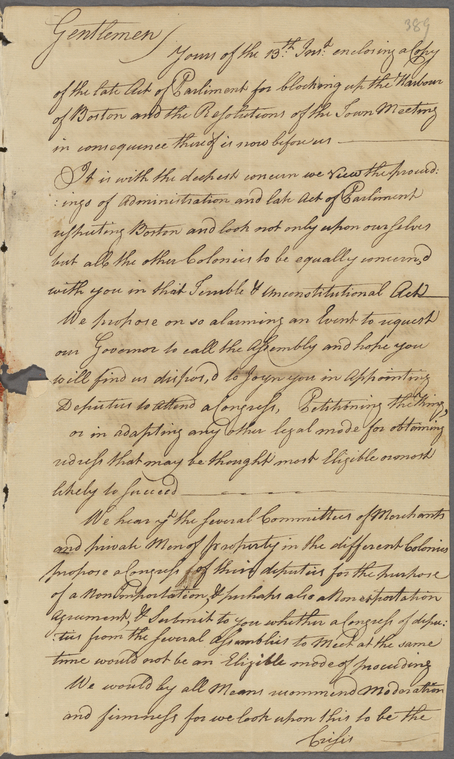 389
Gentlemen
Yours of the 13.th Inst. enclosing a Copy
of the late Act of Parliment for blocking up the Harbour
of Boston and the Resolutions of the Town Meeting
in consequence thereof is now before us
It is with the deepest concern we view the proceed:
:ings of Administration and late Act of Parliment
respecting Boston and look not only upon ourselves
but all the other Colonies to be equally concern,d
with you in that Terrible & Unconstitutional Act
We propose on so alarming an Event to request
our Governor to call the Assembly and hope you
will find us dispos,d to Joyn you in Appointing
Deputies to attend a Congress, Petitioning the King
or in adapting any other legal mode for obtaining
redress that may be thought most Eligible or most
likely to succeed
We hear yt the several Committees of Merchants
and private Men of property in the different Colonies
propose a Congress of their deputies for the purpose
of a Nonimportation, & perhaps also a Non exportation
Agreement, & Submit to you whether a Congress of depu:
:ties from the several assemblies to Meet at the same
time would not be an Eligible mode of proceeding
We would by all Means recommend Moderation
and firmness for we look upon this to be the
Crisis